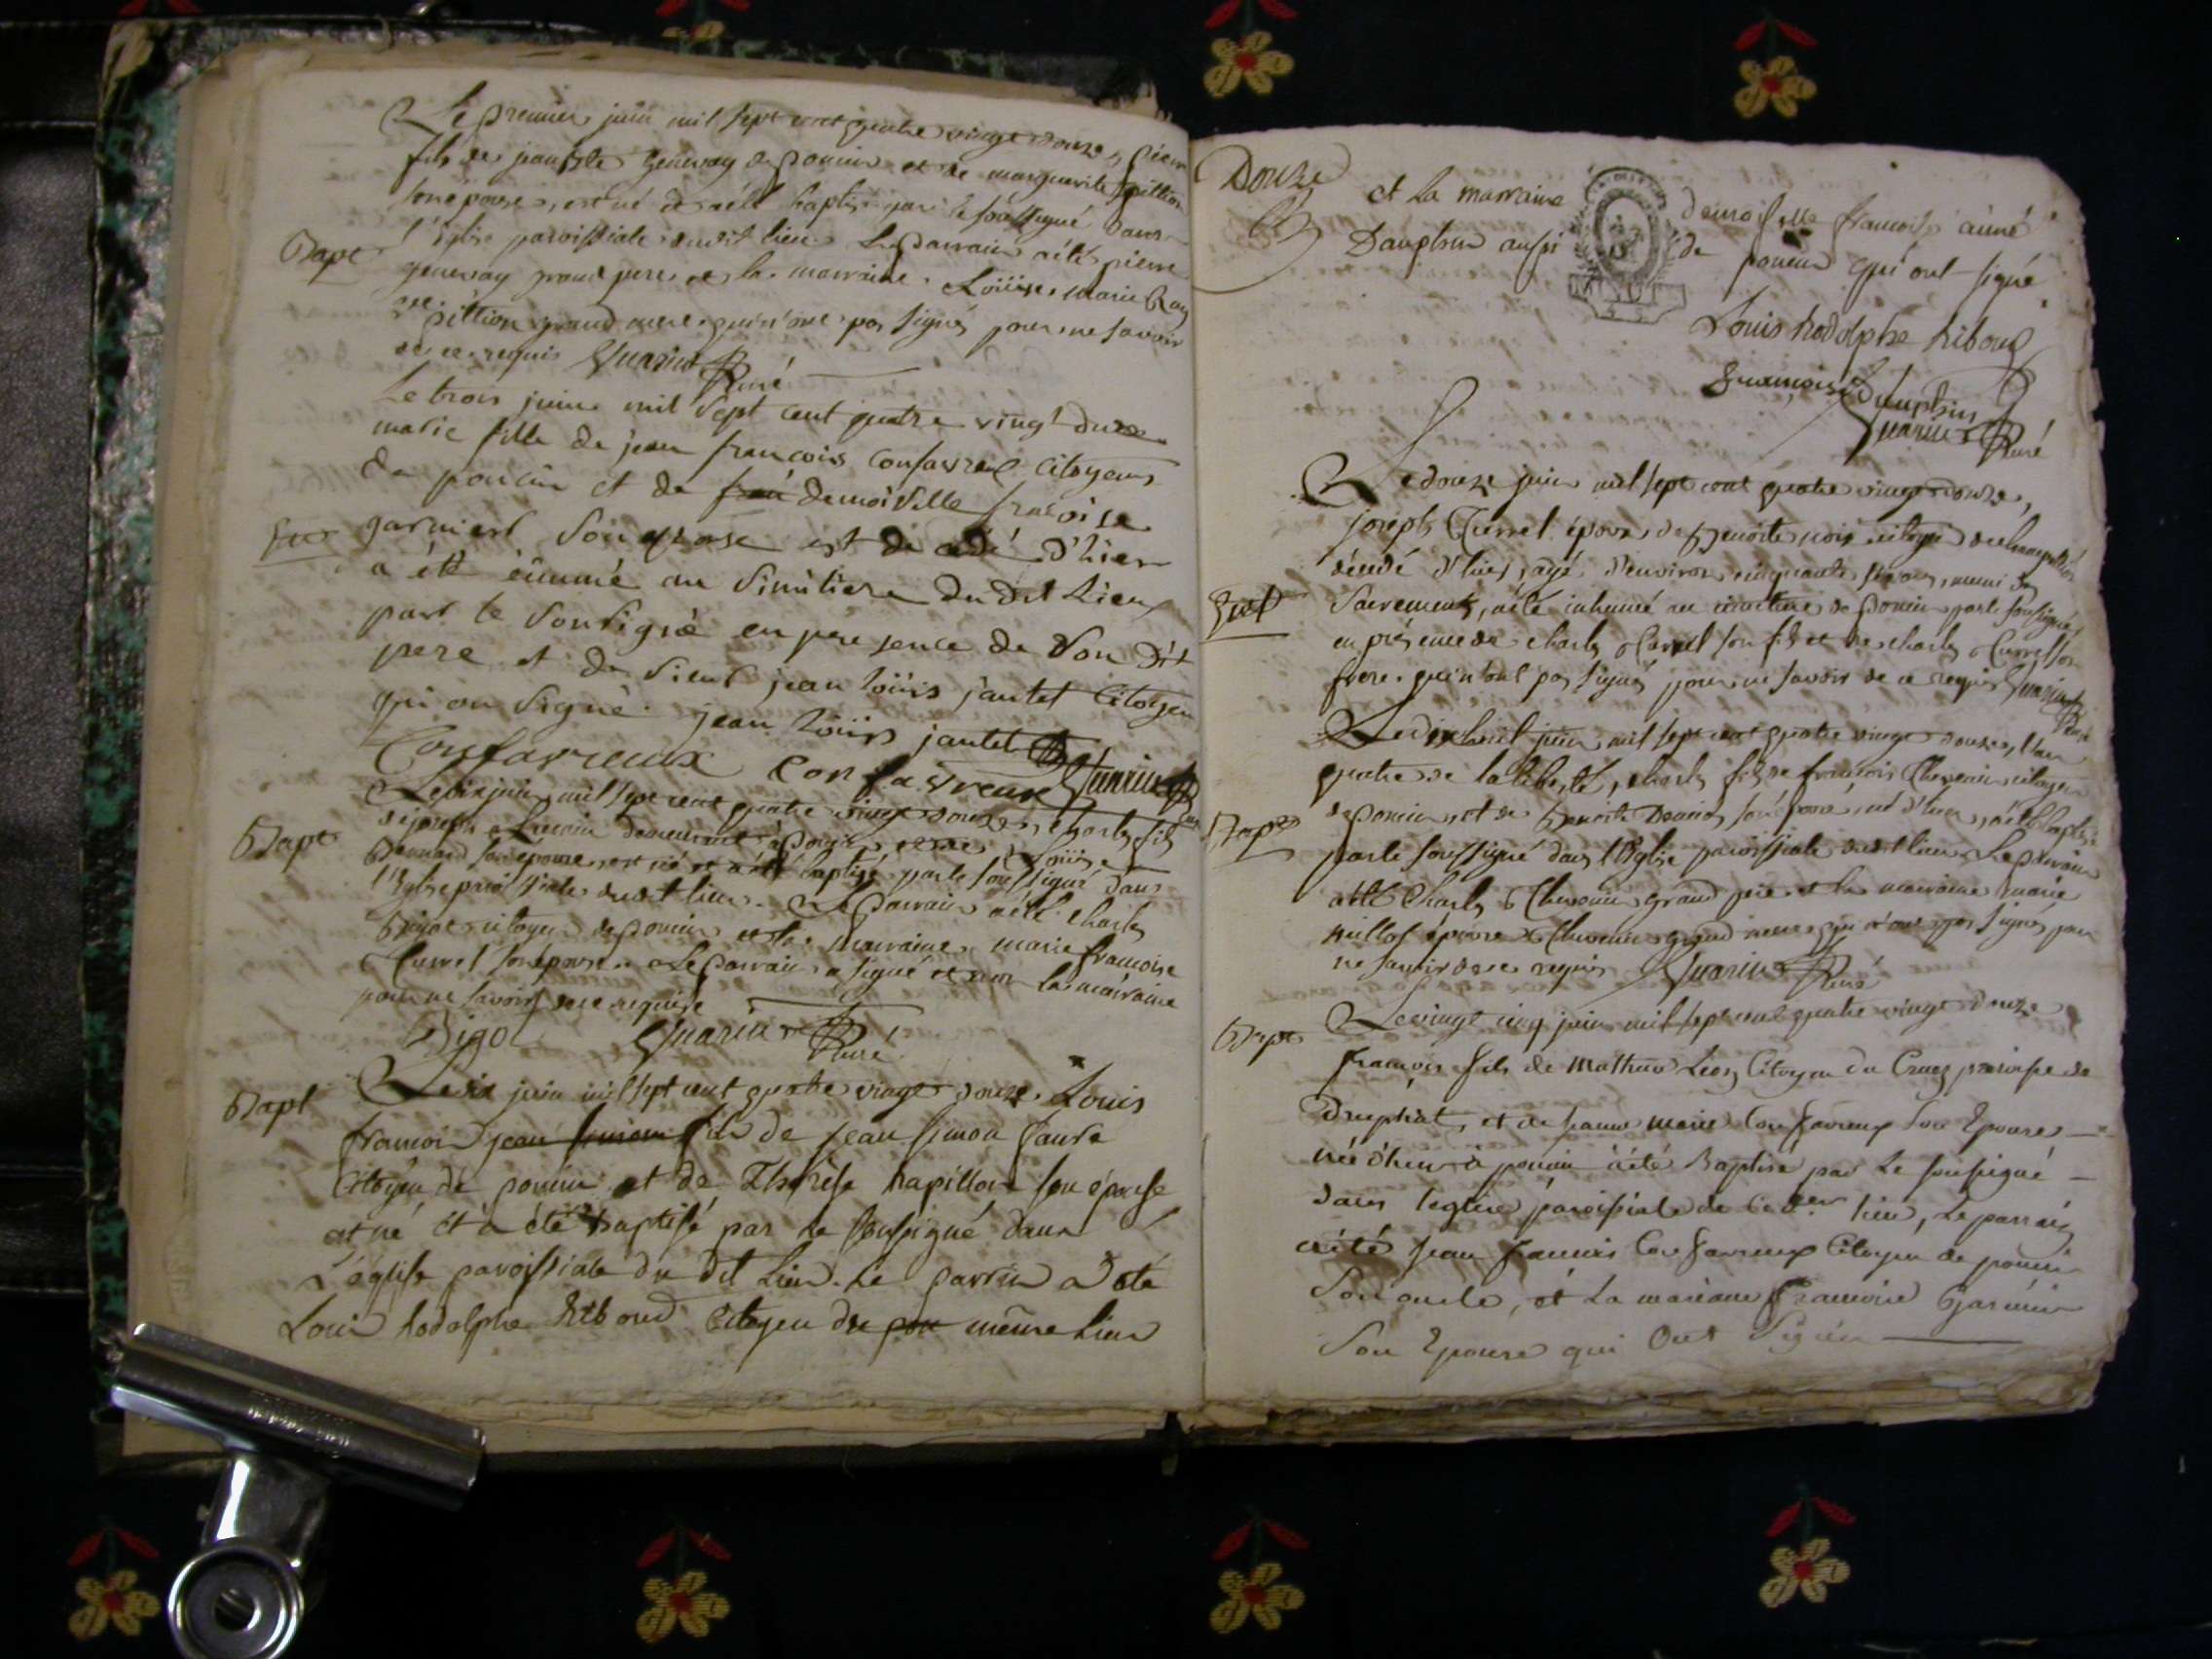 Le premier juin mil sept cent quatre vingt douze, pierre
fils de jean Bte genevay de poncin et de marguerite pittion
son épouse, est né et a été baptisé par le soussigné dans
l'Eglise paroissiale dudit lieu. Le parrain a été pierre
Bapt
genevay grand pere et la marraine Loüise marie
pittion grand mere qui n'ont pas signés pour ne savoir
de ce requis Guarin Curé
Le trois juin mil sept cent quatre vingt duze
marie fille de jean francois Confavreux Citoyens
de poncin et de demoiselle francoise
Ent
garnier son epose est décédé d'hier
a été einumé au simitiere du dit Lieu
part le sousigné en presence de son dit
pere et de sieur jean loüis jantet Citoyen
qui on signé. jean loüis jantet
Confavreux Confavreux Guarin
Le six juin mil sept cent quatre vingt douze, charles fils
de joseph demeurant à poncin et de Loüise
Bapt
Bernard son épouse, est né et a été baptisé par le soussigné dans
l'Eglise paroissiale dudit lieu. Le parrain a été charles
Bigot citoyen de poncin et la marraine marie francoise
Curvel son épouse. Le parrain a signé et non la marraine
pour ne savoir de ce requise
Bigot Guarin Curé
Bapt
Le six juin mil sept cent quatre vingt douze. Louis
francoi jean simon fils de jean simon faure
Citoyen de poncin et de Thérèse rapillon son épouse
est né et a été baptisé par le soussigné dans
L'église paroissiale du dit Lieu. Le parrin a été
Louis hodolphe Riboud Citoyen du pon même Lieu
Douze
et La marraine demoiselle francoise aimé
Dauphin aussi de poncin qui ont signé
Louis hodolphe Riboud
francoise Dauphin
Guarin Curé
Le douze juin mil sept cent quatre vingt douze,
joseph Curvel époux de benoite citoyen de
décédé d'hier, agé d'environ cinquante ans, muni des
Ent
sacrements, a été inhumé au cimetiere de poncin par le soussigné
en présence de charles Curvel son fils et de charles Curvel son
frere qui n'ont pas signés pour ne savoir de ce requis Guarin
Curé
Le dix huit juin mil sept cent quatre vingt douze, l'an
quatre de la liberté, charles fils de francois Chevenin citoyen
de poncin et de benoite son épouse, né d'hier, a été baptisé
Bapt
par le soussigné dans l'Eglise paroissiale dudit lieu. Le parrain
a été Charles Chevenin grand pere et la marraine marie
millet épouse Chevenin grand mere qui n'ont pas signés pour
ne savoir de ce requis Guarin Curé
Bapt
Le vingt cinq juin mil sept cent quatre vingt douze
francois fils de Mathieu Léon Citoyen du Cruez paroisse de
Druphat, et de jeanne marie Confavreux son Epouse
née d'hier à poncin a été Baptisé par le soussigné
dans l'eglise paroissiale de ce der lieu, le parrain
a été jean francois Confavreux Citoyen de poncin
son oncle, et la maraine francoise Garnier
son Epouse qui ont signés